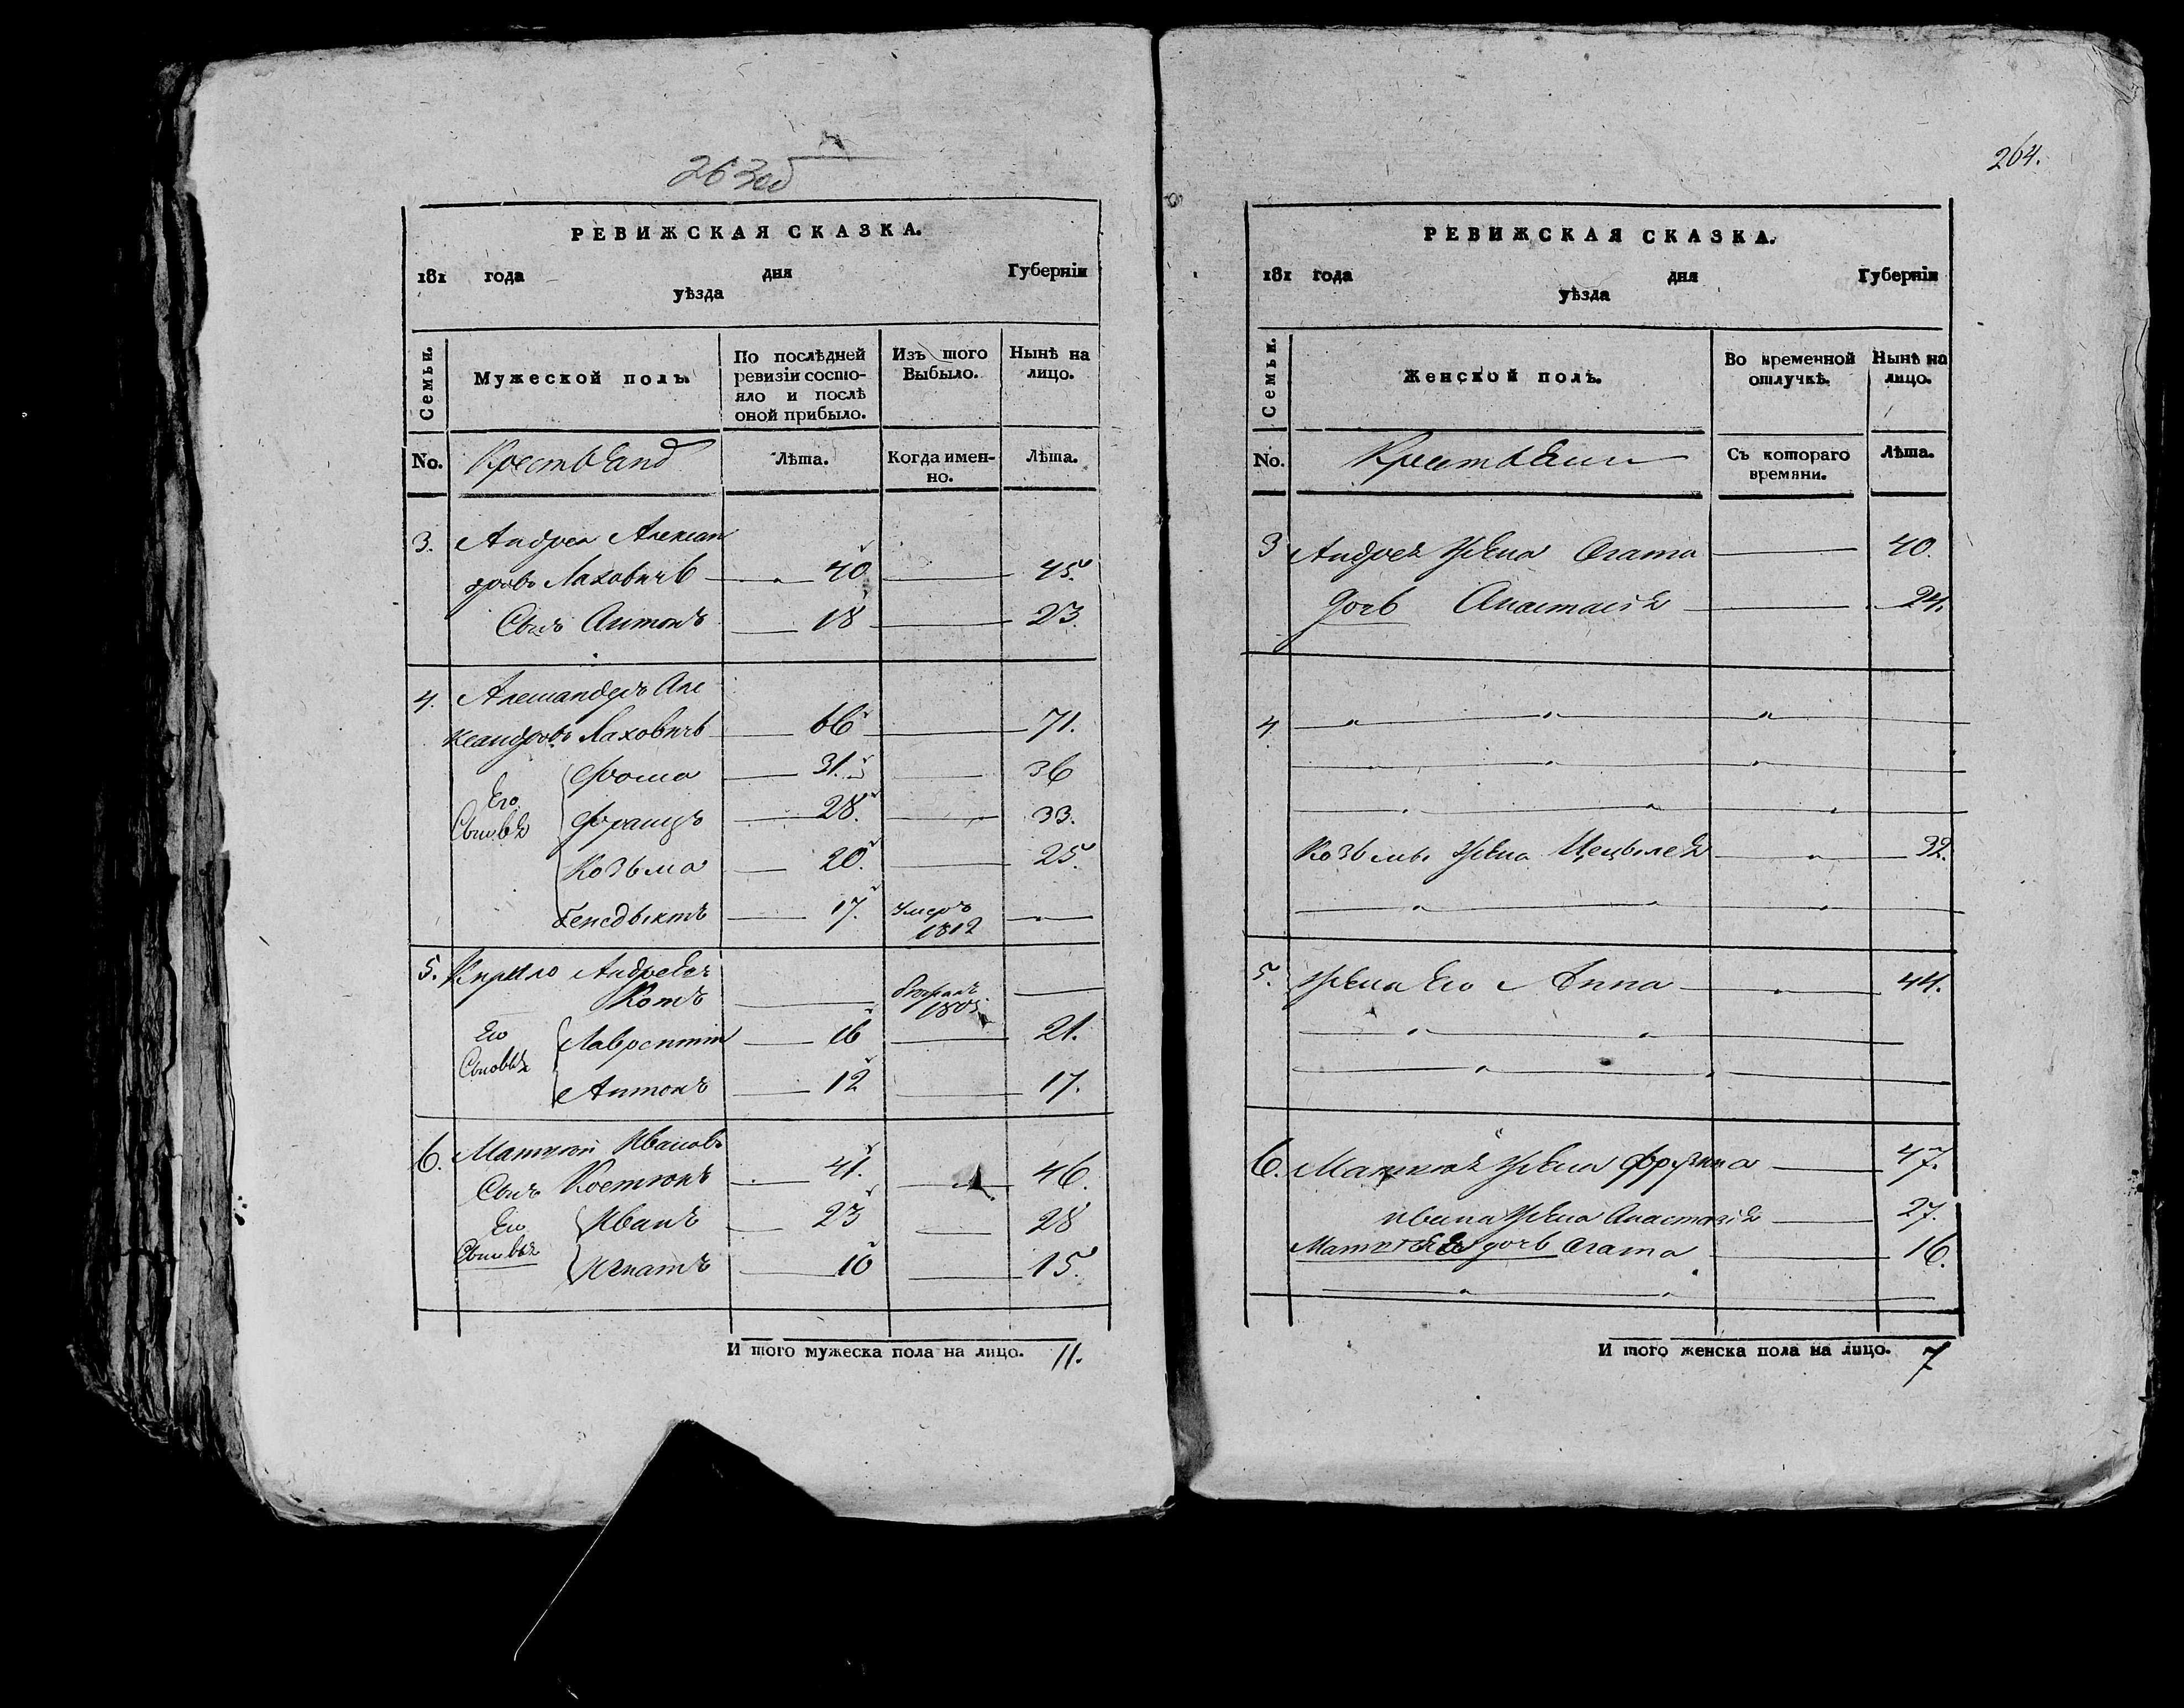 263об
РЕВИЖСКАЯ СКАЗКА.
181 года дня Губерніи
уѣзда
Семьи.
Мужеской полъ
По послѣдней ревизіи состояло и послѣ оной прибыло.
Изъ того Выбыло.
Нынѣ на лицо.
No.
Лѣта.
Когда именно.
Лѣта.
3. Андрей Алексан
дровъ Лаховичъ 40 45.
Сынъ Антонъ 18 23.
4. Александеръ Але
ксандровъ Лаховичъ 66 71.
Его Сыновѣ
Фома 31. 36
Францъ 28. 33.
Козьма 20. 25.
Бенедыктъ 17. Умеръ 1812
5. Кирило Андреевъ
Котъ
Его Сыновья
Лаврентій 16 21.
Антонъ 12 17.
6. Матвей Ивановъ
Сынъ Костюкъ 41. 46.
Его Сыновья
Иванъ 23 28
Игнатъ 10 15.
И того мужеска пола на лицо. 11.
264.
РЕВИЖСКАЯ СКАЗКА.
181 года дня Губерніи
уѣзда
Семьи.
Женской полъ.
Во временной отлучкѣ.
Нынѣ на лицо.
No.
Съ котораго времяни.
Лѣта.
3 Андрея жена Агата 40.
дочь Анастасія 24.
4.
Козьмы жена Цецылея 32.
5. жена Его Анна 44.
6. Матвея жена Фрузина 47.
Ивана жена Анастазія 27.
Матвея дочь Агата 16.
И того женска пола на лицо. 7